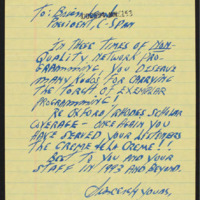 To: Brian
President, C-Span
In these times of non-
quality network pro-
gramming, you deserve
many kudos for carrying
the torch of exemplar
programming!
Re Oxford/Rhodes Scholar
coverage - once again you
have served your listeners
the creme de la creme!!
Best to you and your
staff in 1993 and beyond.
Sincerely yours,